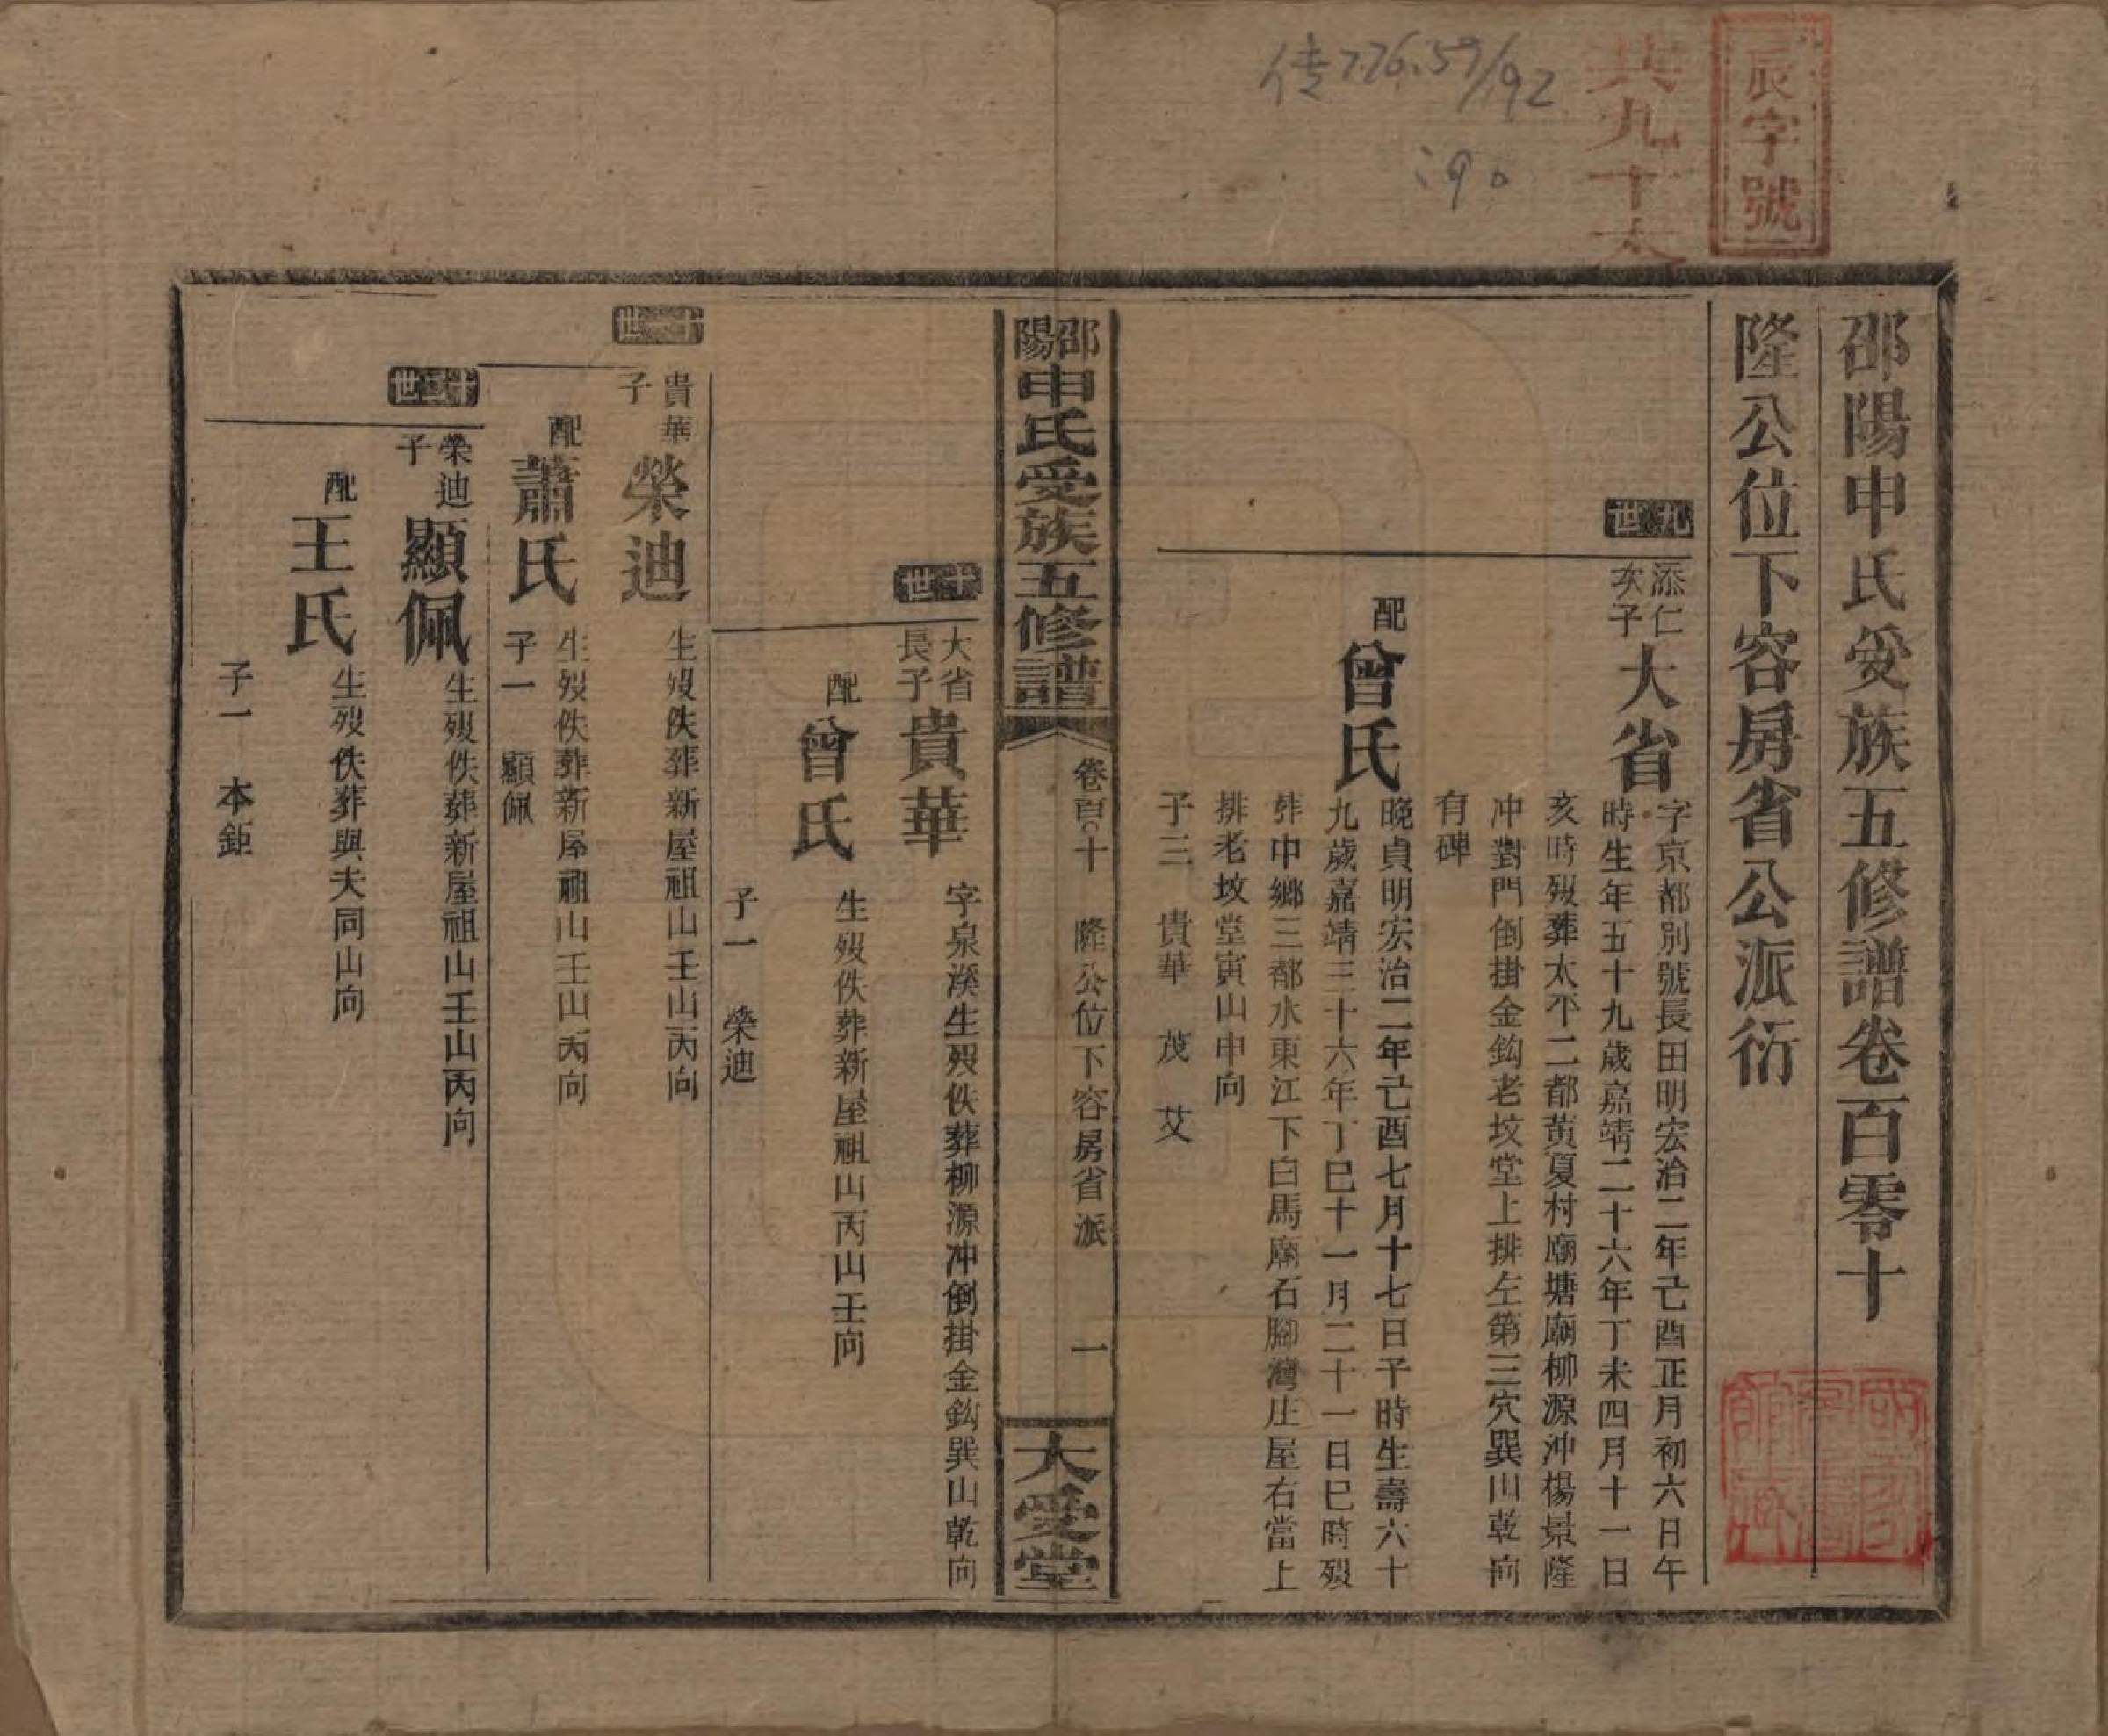 辰字號
共九十六
传776.59/192
:90
邵陽申氏受族五修譜卷百零十
隆公位下容房省公派衍
九世
添仁次子
大省
字京都別號長田明宏治二年己酉正月初六日午
時生年五十九歲嘉靖二十六年丁未四月十一日
亥時歿葬太平二都黃夏村廟塘廟柳源沖楊景隆
冲對門倒掛金鈎老坟堂上排左第三穴巽山乾向
有碑
配
曾氏
晚貞明宏治二年己酉七月十七日子時生壽六十
九歲嘉靖三十六年丁巳十一月二十一日巳時歿
葬中鄉三都水東江下白馬廟石腳灣庄屋右當上
排老坟堂寅山申向
子三 貴華 茂 艾
邵陽申氏受族五修譜
卷百〇十 隆公位下容房省派 一
大受堂
十世
大省長子
貴華
字泉溪生歿佚葬柳源冲倒掛金鈎巽山乾向
配
曾氏
生歿佚葬新屋祖山丙山壬向
子一 榮迪
十一世
貴華子
榮迪
生歿佚葬新屋祖山壬山丙向
配
蕭氏
生歿佚葬新屋祖山壬山丙向
子一 顯佩
十二世
榮迪子
顯佩
生歿佚葬新屋祖山壬山丙向
配
王氏
生歿佚葬與夫同山向
子一 本鉅